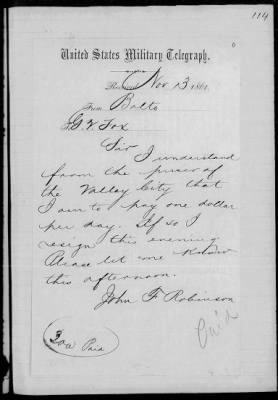 114
United States Military Telegraph.
Received Nov 13 1861.
From Balto
G. V. Fox
Sir I understand
from the purser of
the Valley City that
I am to pay one dollar
per day. If so I
resign this evening
Please let me know
this afternoon.
John F Robinson
Paid
30 Paid